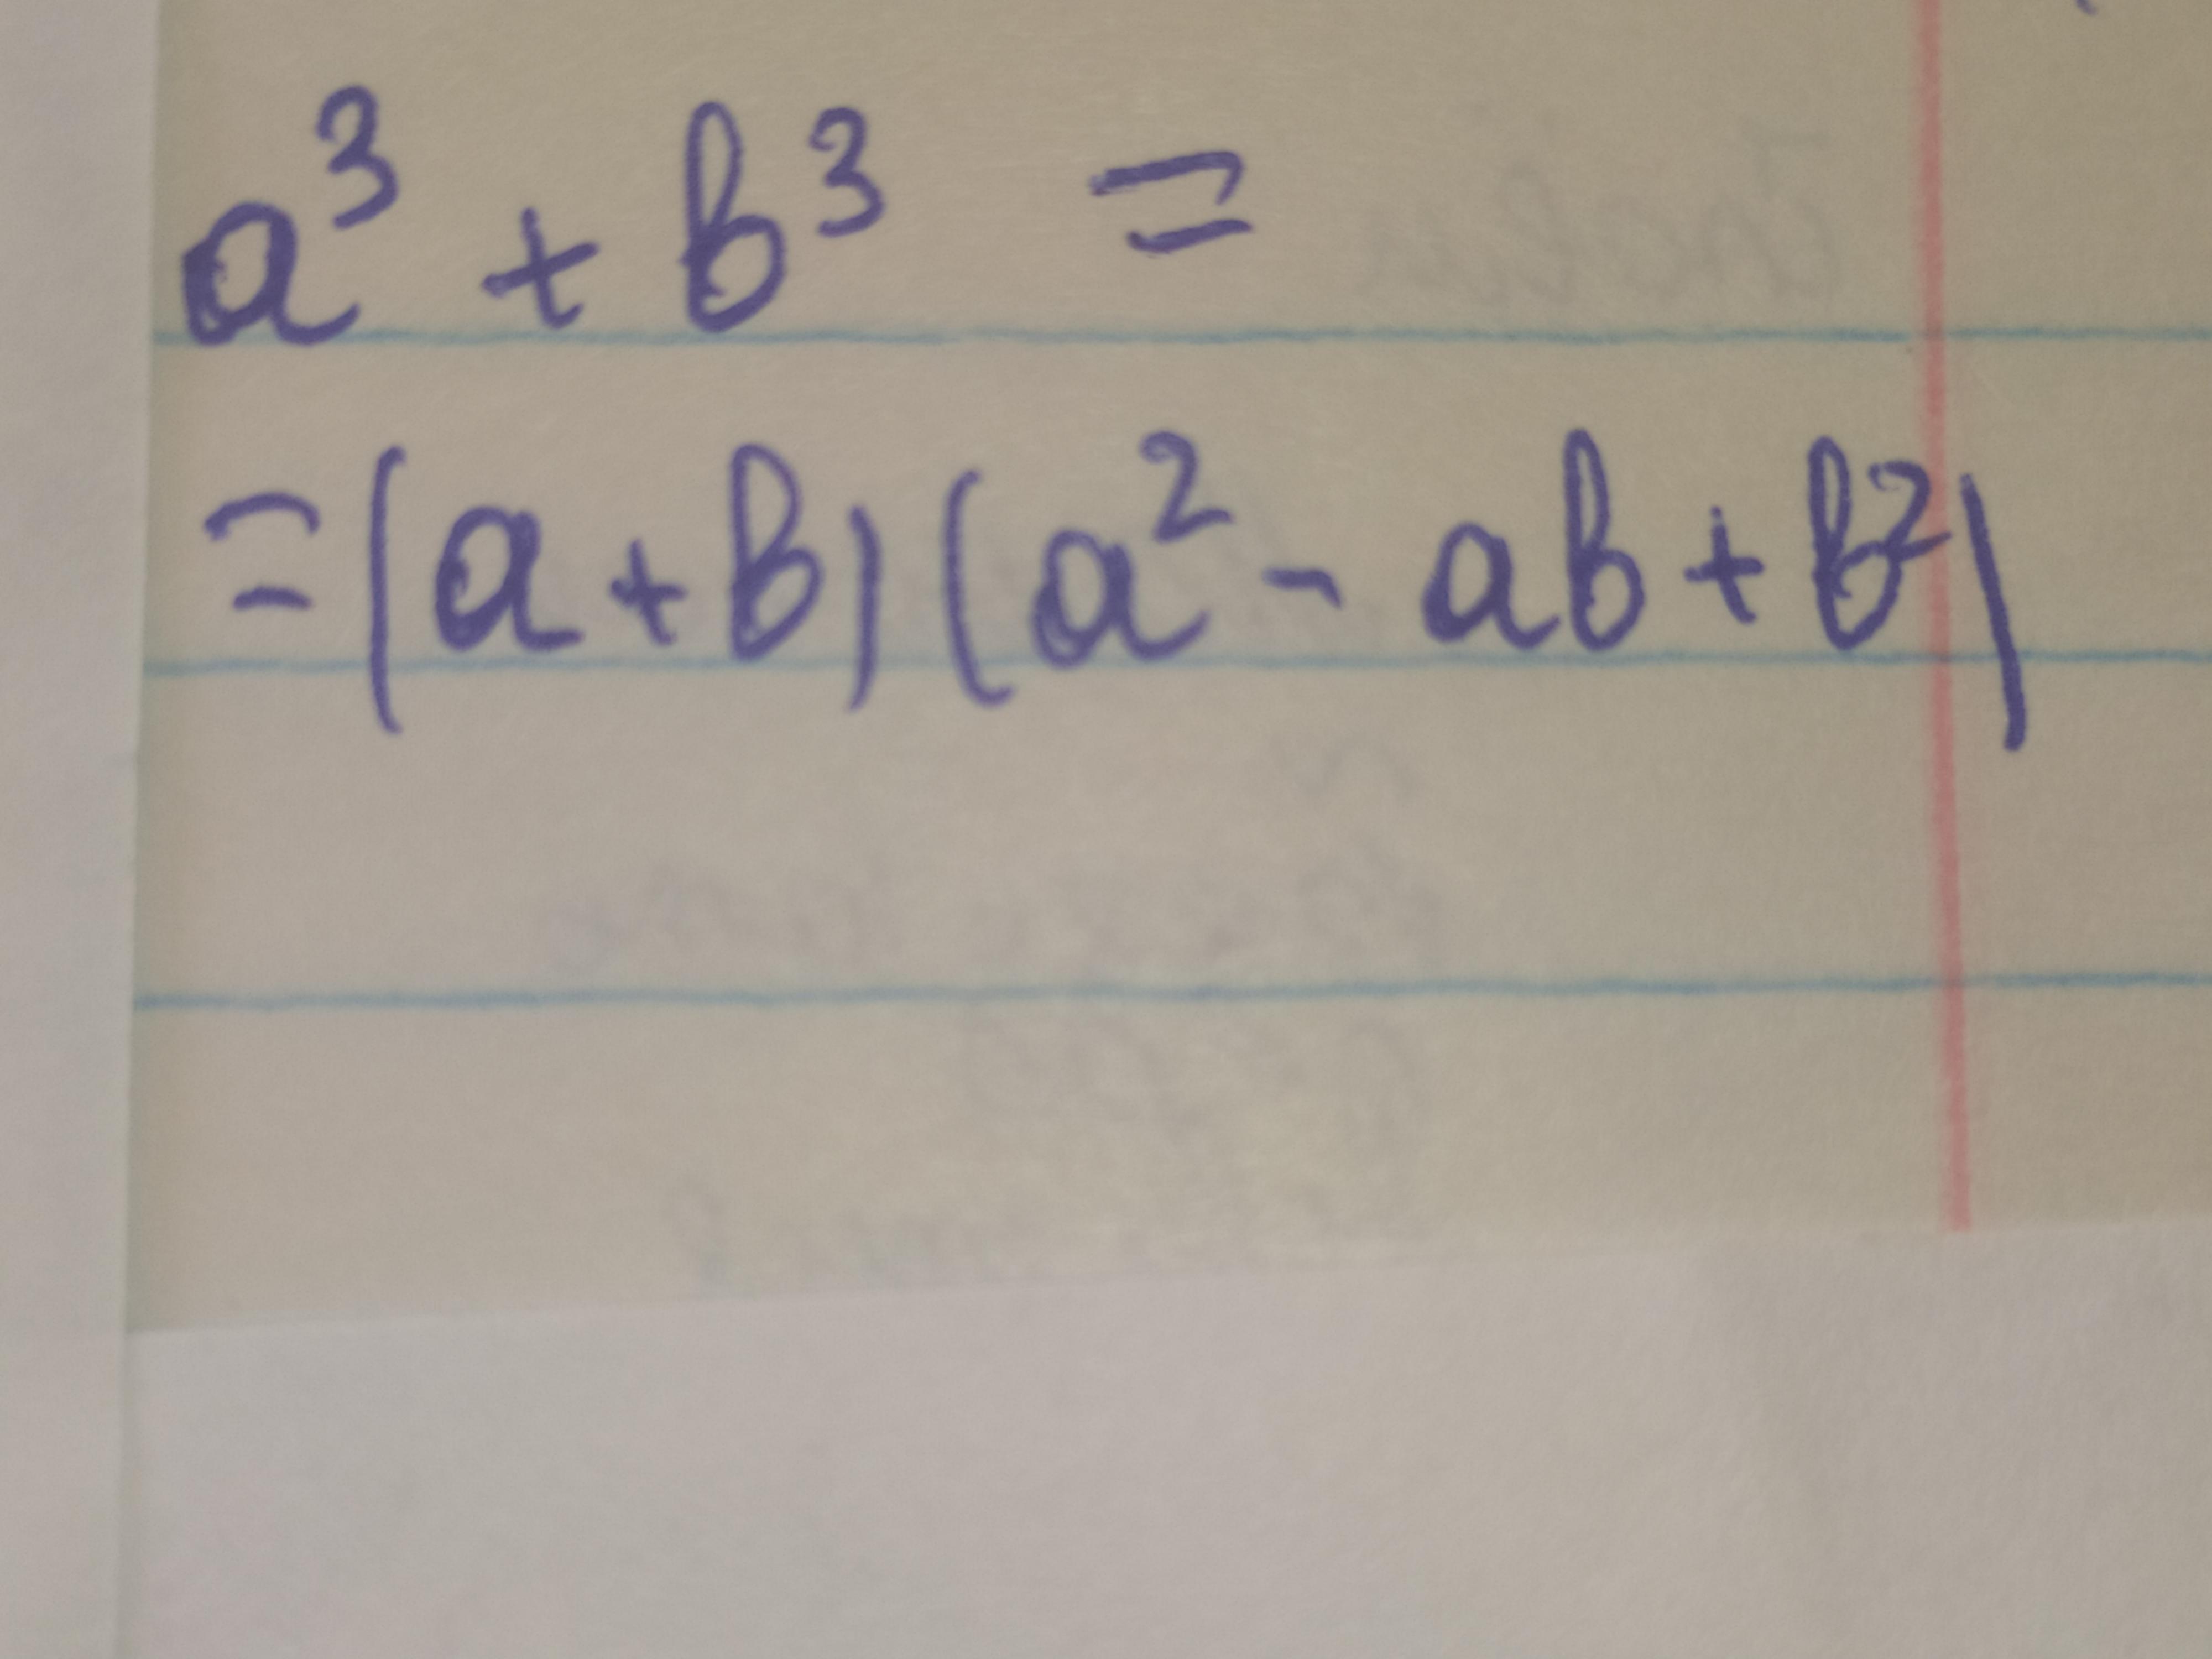 a³ + b³ =
= (a + b) (a² - ab + b²)